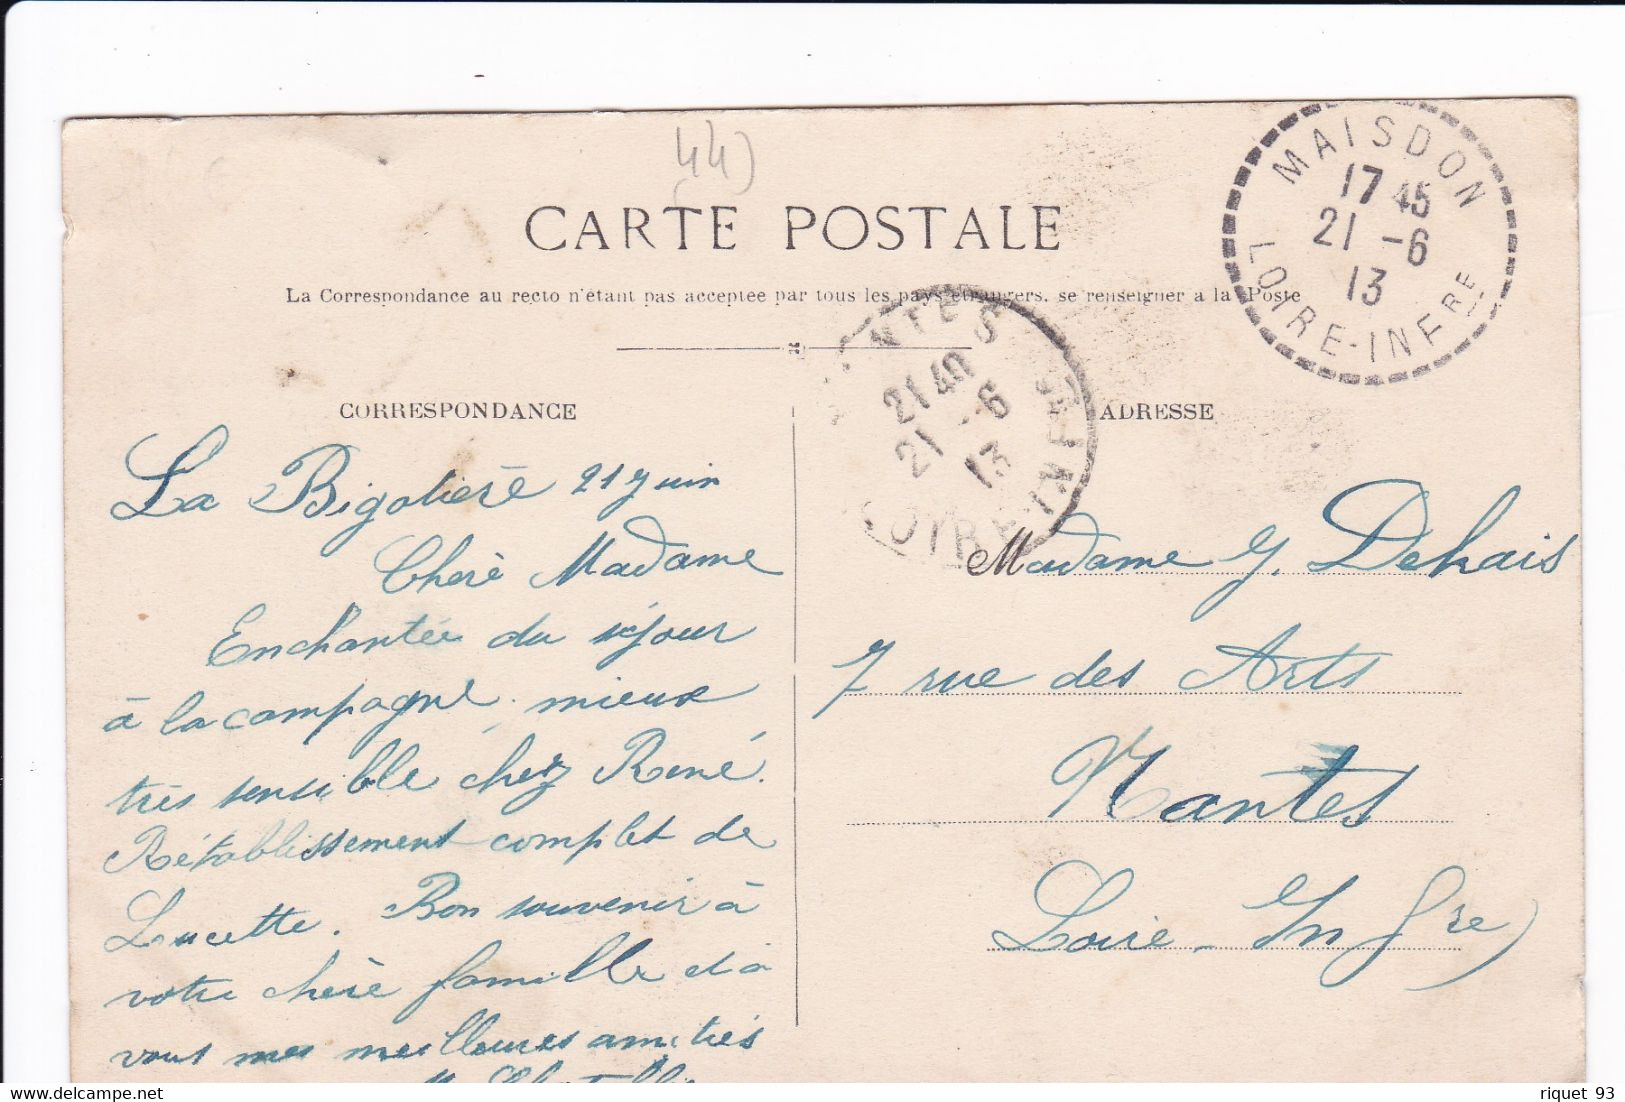 44)
CARTE POSTALE
La Correspondance au recto n'étant pas acceptée par tous les pays étrangers, se renseigner a la Poste
MAISDON
17 45
21 -6
13
LOIRE-INFRE
NTES
21 40
21 -6
13
LOIRE-INFRE
CORRESPONDANCE
La Bigotière 21 juin
Chère Madame
Enchantée du séjour
à la campagne, mieux
très sensible chez René.
Rétablissement complet de
Lucette. Bon souvenir à
votre chère famille et à
vous mes meilleures amitiés
ADRESSE
Madame G. Dehais
7 rue des Arts
Nantes
Loire-Infre)
riquet 93